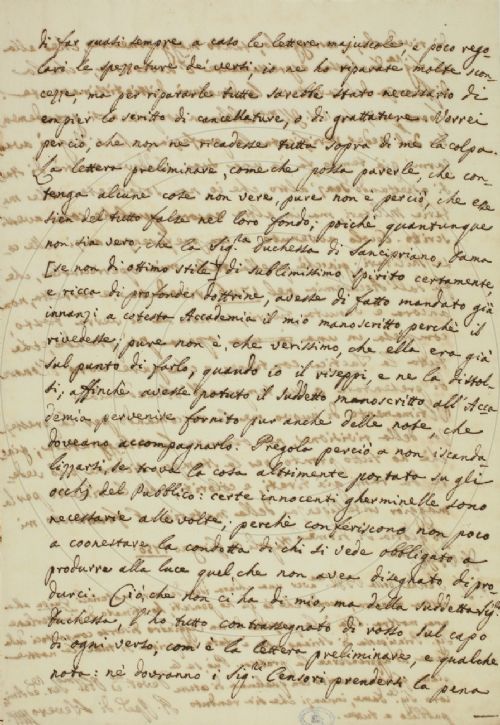 di far quasi sempre a caso le lettere majuscole, e poco rego-
lari le spezzature dei versi, io ne ho riparate molte scon-
cezze, ma per ripararle tutte sarebbe stato necessario di
empier lo scritto di cancellature, o di grattature. Vorrei
perciò, che non ne ricadesse tutta sopra di me la colpa.
La lettera preliminare, come che possa parerle, che con-
tenga alcune cose non vere, pure non è perciò, che esse
sien del tutto false nel loro fondo; poiché quantunque
non sia vero, che la Sig.ra Duchessa di Sancipriano, Dama
[se non di ottimo stile] di sublimissimo spirito certamente,
e ricca di profonde dottrine, avesse di fatto mandato già
innanzi a cotesta Accademia il mio manoscritto, perchè il
rivedesse; pure non è, che verissimo, che ella era già
sul punto di farlo, quando io il riseppi, e ne la distol-
si, affinchè avesse potuto il suddetto manoscritto all'Acca-
demia pervenire fornito pur anche delle note, che
doveano accompagnarlo. Pregola perciò a non iscanda-
lizzarsi, se trova la cosa altrimente portata su gli
occhj del Pubblico: certe innocenti gherminelle sono
necessarie alle volte, perchè conferiscono non poco
a coonestare la condotta di chi si vede obbligato a
produrre alla luce quel, che non avea disegnato di pro-
durci. Ciò, che non ci ha di mio, ma della suddetta Sig.
Duchessa, l'ho tutto contrassegnato di rosso sul capo
di ogni verso, com'è la lettera preliminare, e qualche
nota: nè dovranno i Sig.ri Censori prendersi la pena